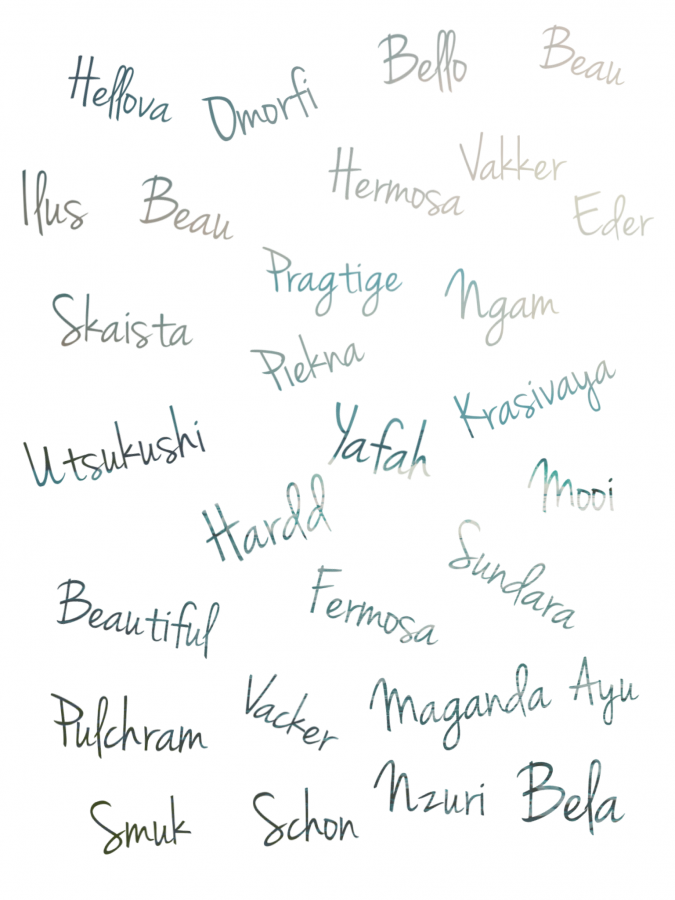 Hellova Omorfi Bello Beau
Ilus Beau Hermosa Vakker Eder
Skaista Pragtige Ngam
Piekna
Utsukushi Yafah Krasivaya
Hardd Mooi
Beautiful Fermosa Sundara
Pulchram Vacker Maganda Ayu
Smuk Schon Nzuri Bela